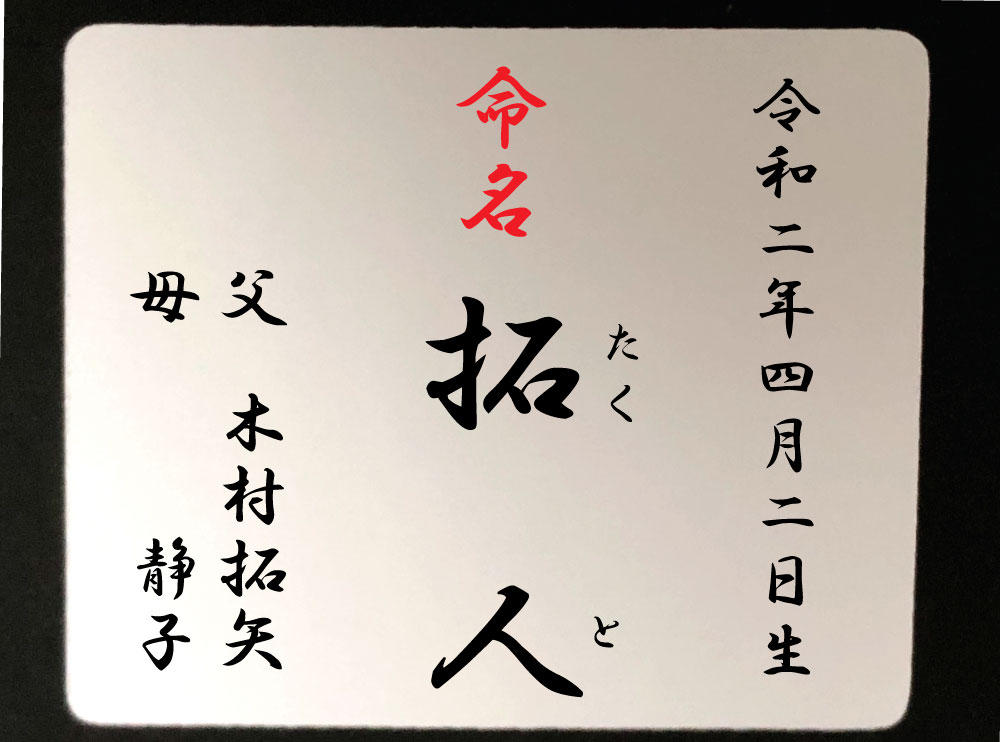 令和二年四月二日生
命名
拓人
たくと
父 木村拓矢
母 静子